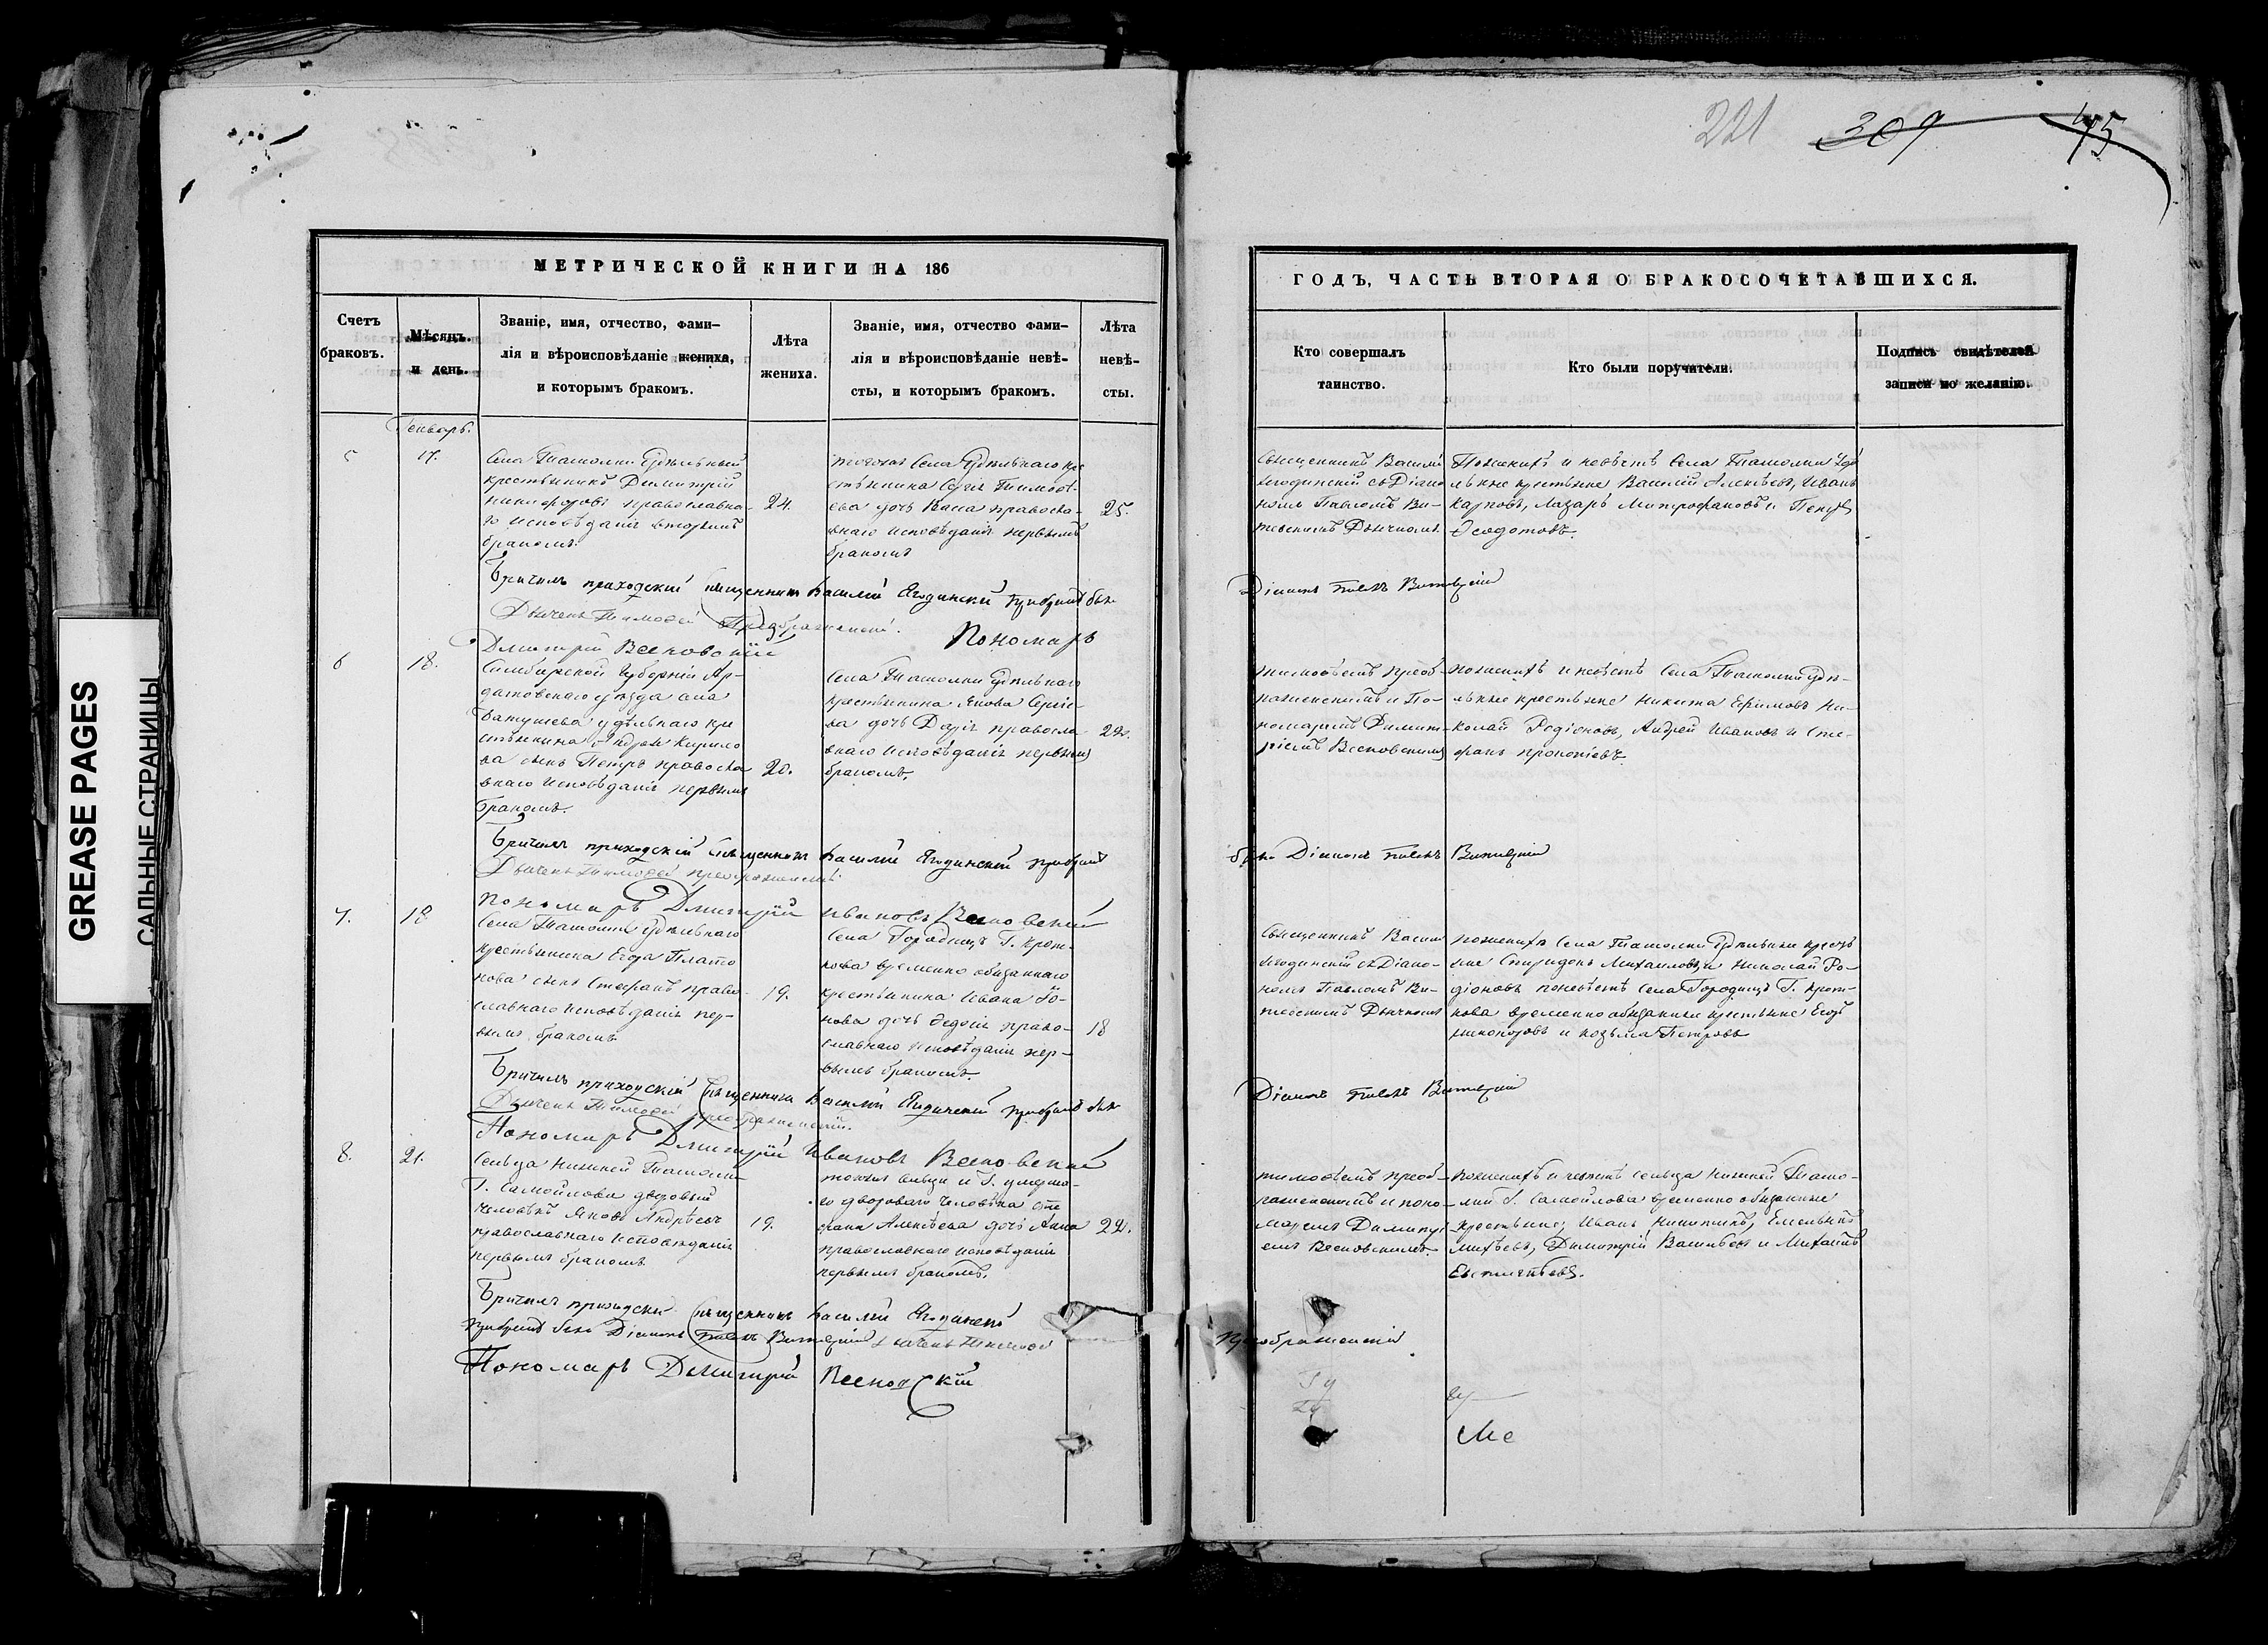 GREASE PAGES
САЛЬНЫЕ СТРАНИЦЫ
221
309
45
МЕТРИЧЕСКОЙ КНИГИ НА 186
Счетъ браковъ.
Мѣсяцъ. и день.
Званіе, имя, отчество, фами-
лія и вѣроисповѣданіе жениха,
и которымъ бракомъ.
Лѣта жениха.
Званіе, имя, отчество фами-
лія и вѣроисповѣданіе невѣ-
сты, и которымъ бракомъ.
Лѣта невѣ-
сты.
ГОДЪ, ЧАСТЬ ВТОРАЯ О БРАКОСОЧЕТАВШИХСЯ.
Кто совершалъ
таинство.
Кто были поручители.
Подпись свидѣтелей
записи по желанію.
5
17.
Села Ташолки Удѣльный
крестьянинъ Димитрій
Никифоровъ православна-
го исповѣданія вторымъ
бракомъ.
24.
тогоже Села Удѣльнаго кре
стьянина Сергія Тимоѳе-
ева дочь Васса правосла-
внаго исповѣданія первымъ
бракомъ
25.
Священникъ Василій
Ягодинскій съ Діако
номъ Павломъ Ви-
тевскимъ Дьячкомъ
По женихѣ и невѣстѣ Села Ташолки Удѣ
льные крестьяне Василій Алексѣевъ, Иванъ
Карповъ, Лазарь Митрофановъ и Петръ
Ѳеодотовъ.
приходскій священникъ Василій Ягодинскій
Діаконъ Павелъ Витевскій
Дьячекъ Тимоѳей Преображенскій.
Пономарь
Дмитрій Весновскій
6
18.
Симбирской Губерніи Ар-
датовскаго уѣзда села
Батушева удѣльнаго кре
стьянина Кирило
ва сынъ Петръ правосла
внаго исповѣданія первымъ
бракомъ.
20.
Села Ташолки Удѣльнаго
крестьянина Якова Сергіе
ва дочь Дарія правосла
внаго исповѣданія первымъ
бракомъ.
22.
Тимоѳеемъ Преоб-
раженскимъ и По-
номаремъ Димит-
ріемъ Весновскимъ
по женихѣ и невѣстѣ Села Ташолки удѣ-
льные крестьяне Никита Ефимовъ Ни-
колай Родіоновъ, Андрей Ивановъ и Сте-
фанъ Прокопіевъ.
приходскій священникъ Василій Ягодинскій
Діаконъ Павелъ Витевскій
Дьячекъ Тимоѳей Преображенскій
Пономарь Дмитрій Ивановъ Весновскій
7.
18
Села Ташолки Удѣльнаго
крестьянина Егора Плато
нова сынъ Стефанъ право
славнаго исповѣданія пер-
вымъ бракомъ
19.
Села Городищъ Г.
временно обязаннаго
крестьянина Ивана
нова дочь Ѳедосія право-
славнаго исповѣданія пер-
вымъ бракомъ.
18
Священникъ Василій
Ягодинскій съ Діако-
номъ Павломъ Ви-
тевскимъ Дьячкомъ
по женихѣ Села Ташолки Удѣльные кресть
яне Спиридонъ Михаиловъ и Николай Ро-
діоновъ по невѣстѣ Села Городищъ Г.
временно обязанные крестьяне Егоръ
Никифоровъ и Козьма Петровъ
приходскій священникъ Василій Ягодинскій
Діаконъ Павелъ Витевскій
Дьячекъ Тимоѳей Преображенскій.
Пономарь Дмитрій Ивановъ Весновскій
8.
21.
Сельца Нижней Ташолки
Г. Самойлова дворовый
человѣкъ Яковъ Андрѣевъ
православнаго исповѣданія
первымъ бракомъ
19.
тогоже сельца и Г. умерша-
го двороваго человѣка Сте
фана Алексѣева дочь Анна
православнаго исповѣданія
первымъ бракомъ.
22.
Тимоѳеемъ Преоб-
раженскимъ и поно-
маремъ Димитрі
емъ Весновскимъ.
по женихѣ и невѣстѣ сельца Нижней Ташо-
лки Г. Самойлова временно обязанные
крестьяне: Иванъ Никитинъ, Емельянъ
Михѣевъ, Димитрій Васильевъ и Михаилъ
приходскій священникъ Василій Ягодинскій
Діаконъ Павелъ Витевскій Дьячекъ Тимоѳей
Преображенскій
Пономарь Дмитрій Весновскій